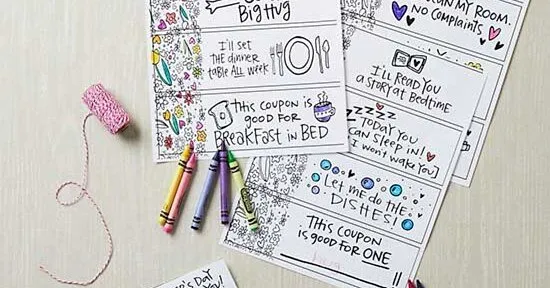 Big Hug
I'll set
the dinner
table ALL week
This coupon is
good for
Breakfast in BED
my room.
No complaints
I'll Read you
a story at bedtime
ZZZZZ
Today you
can sleep in!
[I won't wake you]
Let me do the
Dishes!
This coupon
is good for ONE
Day